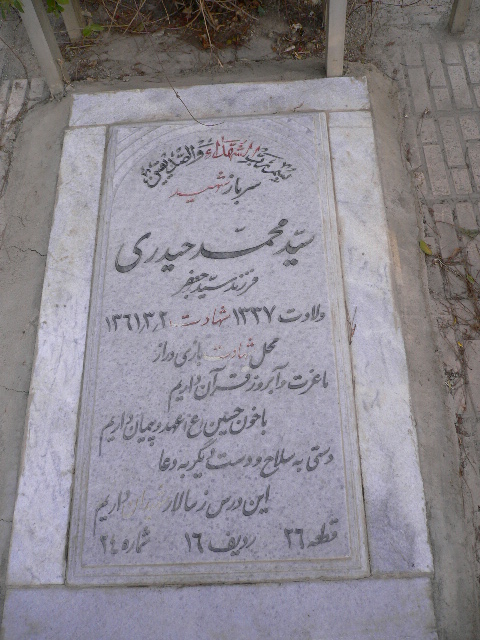 بسم رب الشهداء والصدیقین
سرباز شهید
سید محمد حیدری
فرزند سید جعفر
ولادت ۱۳۳۷ شهادت ۱۳۶۱٫۳٫۲
محل شهادت بازی دراز
ما عزت و آبرو ز قرآن داریم
با خون حسین (ع) عهد و پیمان داریم
دستی به سلاح و دست دیگر به دعا
این درس ز سالار داریم
قطعه ۲۶ ردیف ۱۶ شماره ۲۴